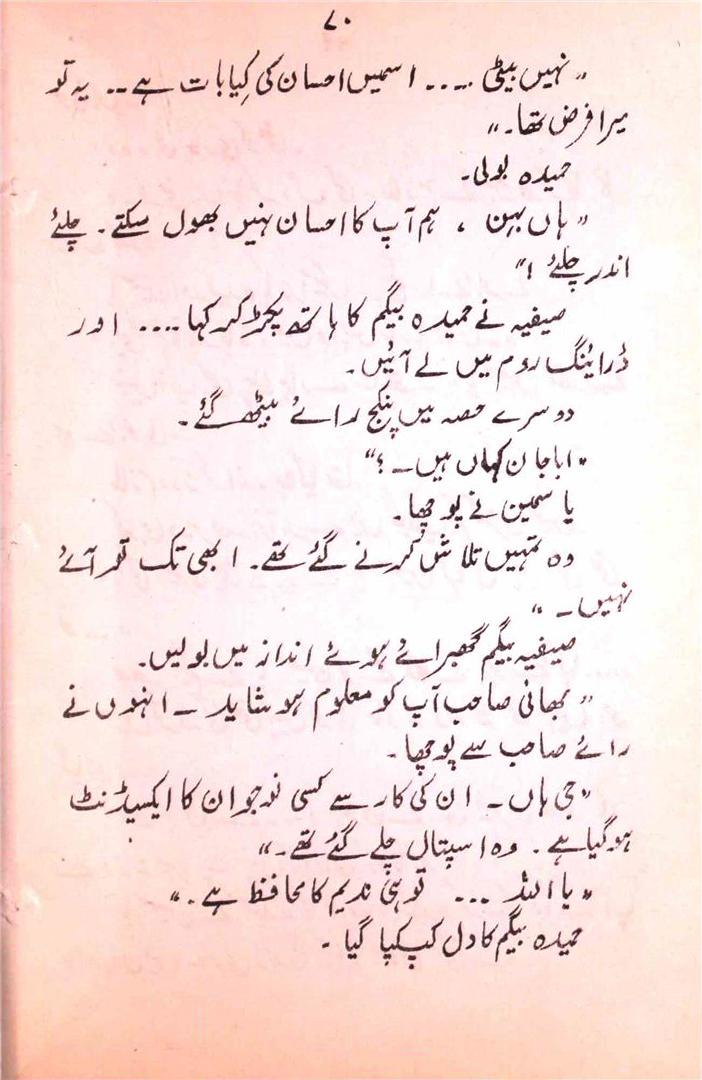 ۷۰
"نہیں بیٹی ..... اسمیں احسان کی کیا بات ہے -- یہ تو
میرا فرض تھا۔"
حمیدہ بولی۔
"ہاں بہن ، ہم آپ کا احسان نہیں بھول سکتے۔ چلئے
اندر چلئے !"
صیفیہ نے حمیدہ بیگم کا ہاتھ پکڑ کر کہا .... اور
ڈرائینگ روم میں لے آئیں۔
دوسرے حصہ میں پنکج رائے بیٹھ گئے۔
"اباجان کہاں ہیں ۔؟"
یاسمین نے پوچھا۔
وہ تمہیں تلاش کرنے گئے تھے۔ ابھی تک تو آئے
نہیں ۔"
صیفیہ بیگم گھبرائے ہوئے انداز میں بولیں۔
"بھائی صاحب آپ کو معلوم ہو شاید ۔ انہوں نے
رائے صاحب سے پوچھا۔
"جی ہاں ۔ ان کی کار سے کسی نوجوان کا ایکسیڈنٹ
ہوگیا ہے۔ وہ اسپتال چلے گئے تھے ۔"
"یا اللہ ... تو ہی ندیم کا محافظ ہے ۔"
حمیدہ بیگم کا دل کپکپا گیا ۔